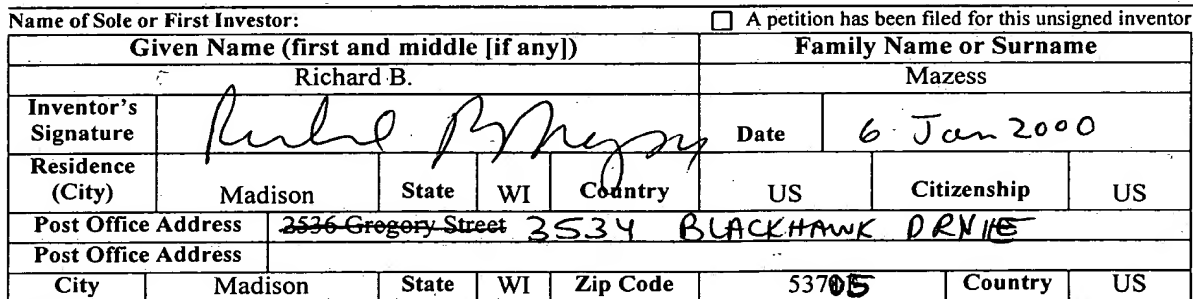 Name of Sole or First Investor: A petition has been filed for this unsigned inventor
Given Name (first and middle [if any]) Family Name or Surname
Richard B. Mazess
Inventor's Signature Date 6 Jan 2000
Residence (City) Madison State WI Country US Citizenship US
Post Office Address 2536 Gregory Street 3534 BLACKHAWK DRIVE
Post Office Address
City Madison State WI Zip Code 53705 Country US